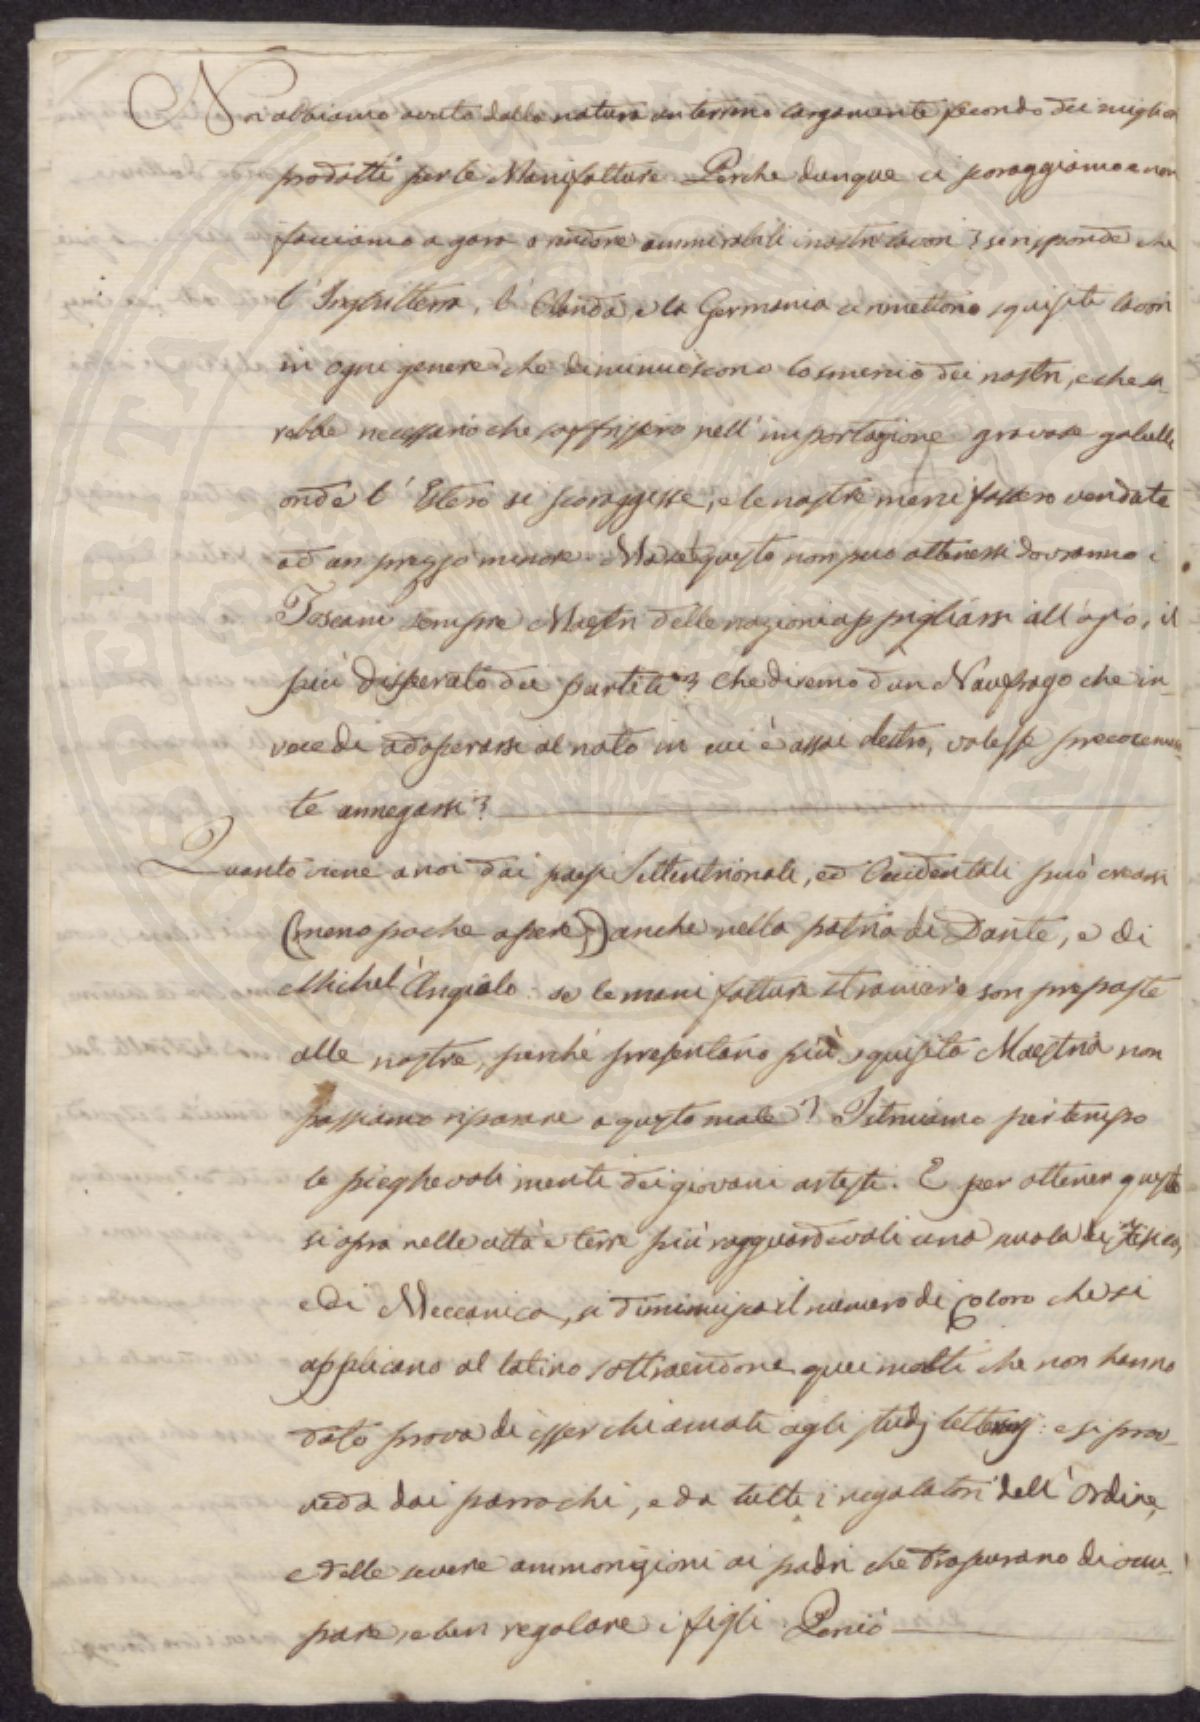 Noi abbiamo avuto dalla natura un terreno largamente fecondo dei migliori
prodotti per le Manifatture. Perche dunque ci scoraggiamo e non
facciamo a gara a rendere ammirabili i nostri lavori? si risponde che
l'Inghilterra, l'Olanda, e la Germania ci rimettono squisiti lavori
in ogni genere che diminuiscono lo smercio dei nostri, e che sa-
rebbe necessario che soffrissero nell'importazione gravose gabelle
onde l'Estero si scoraggisse, e le nostre merci fossero vendute
ad un prezzo minore. Ma se questo non puo ottenersi dovranno i
Toscani sempre Maestri delle nazioni appigliarsi all'ozio, il
più disperato dei partiti? che diremo d'un Naufrago che in-
vece di adoperarsi al noto in cui è assai destro, volesse precocemen-
te annegarsi?
Quanto viene a noi dai paesi Settentrionali, ed Occidentali può crearsi
(meno poche opere,) anche nella patria di Dante, e di
Michel'Angiolo: se le manifatture straniere son preposte
alle nostre, perché presentano più squisita Maestria non
possiamo riparare a questo male? Istruiamo per tempo
le pieghevoli menti dei giovani artisti. E per ottener questo
si apra nelle città e terre più ragguardevoli una scuola di Fisica,
e di Meccanica, si diminuisca il numero di coloro che si
applicano al latino sottraendone quei molti che non hanno
dato prova di esser chiamati agli studj letterarj: e si prov-
veda dai parrochi, e da tutti i regolatori dell'ordine,
e delle severe ammonizioni ai padri che trascurano di occu-
pare, e ben regolare i figli. Perciò